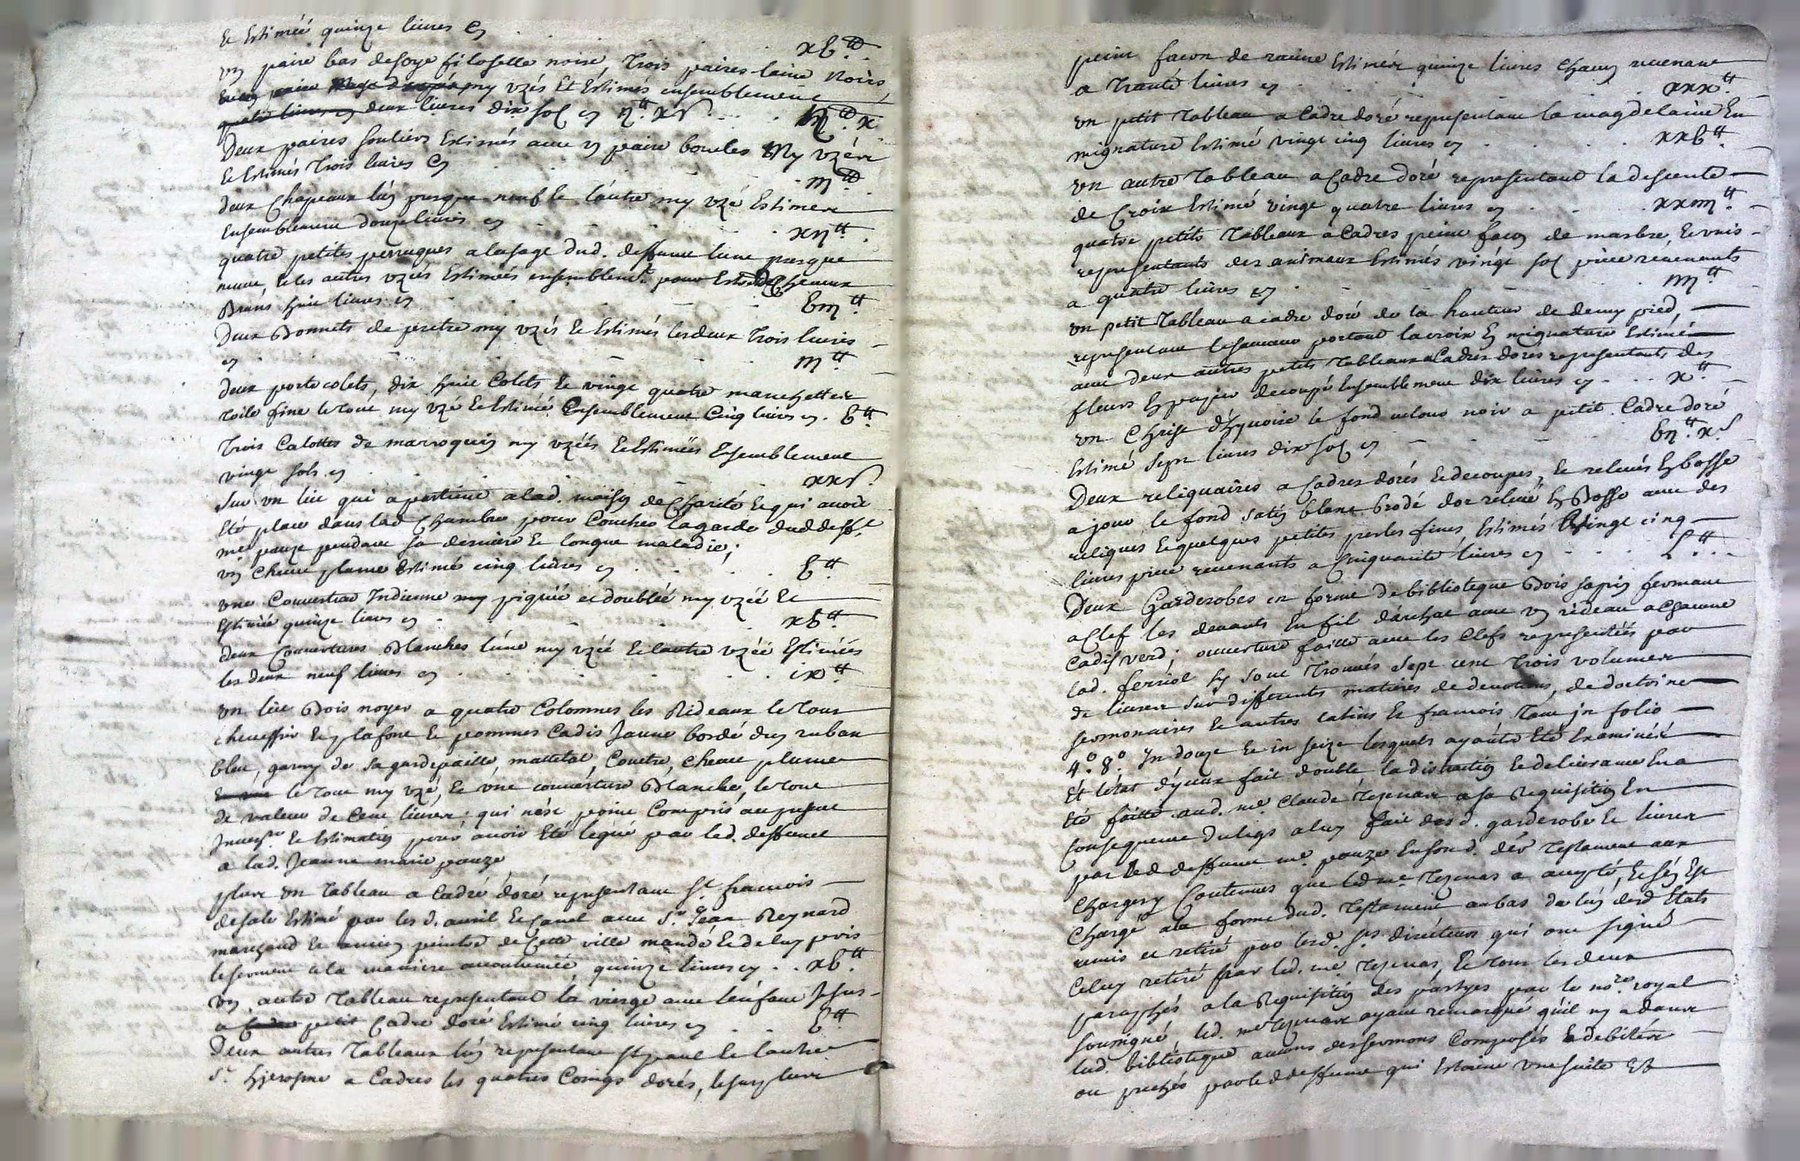 Et Estimée quinze livres cy
xb ₶.
un paire bas de soye filoselle noire, Trois paires laine Noirs,
my uzés Et Estimés ensemblement
deux livres dix sol cy ij ₶ x s ij ₶ x
Deux paires souliers Estimés avec un paire boucles My uzées
Et Estimés Trois livres cy
iij ₶
deux Chapeaux l'un presque neuf le l'autre my uzé Estimées
Ensemblement douze livres cy
xij ₶.
quatre petites perruques a lusage dud. deffunt lune presque
neuve, Et les autres uzées Estimées ensemblemt. pour Estre de Cheveux
Bruns huit livres cy
biij ₶.
Deux Bonnets de pretre my uzés Et Estimés les deux Trois livres
cy
iij ₶
deux porte colets, dix huit Colets Et vingt quatre manchettes
Toile fine le Tout my uzé Et Estimé Ensemblement Cinq livres cy. b ₶.
Trois Calottes de marroquin my uzées Et Estimées Ensemblement
vingt sols cy
xx s.
Sur un lit qui apartient a lad. maison de Charité Et qui avoit
Eté placé dans lad. Chambre pour Coucher la garde dud. defft.
me. pauze pendant sa derniere Et longue maladie;
un Chevet plume Estimé cinq livres cy
b ₶
une Couverture Indienne my piquée et doublée my uzée Et
Estimée quinze livres cy
xb ₶.
deux Couvertures Blanches l'une my uzée Et l'autre uzée Estimées
les deux neuf livres cy
ix ₶.
un lit Bois noyer a quatre Colomnes les Rideaux le Tour
cheussin Et plafont Et pommes Cadis Jaune bordé d'un ruban
bleu, garny de sa gardepaille, mattelat Coutre, Chevet plume
le Tout my uzé, Et une couverture Blanche, le Tout
de valeur de Cent livres; qui n'est point Compris au present
Invre. Et Estimation pour avoir Eté legué par led. deffunt
a lad. Jeanne marie pauze
plus un Tableau a Cadre doré representant St. francois
de sale Estimé par les d. avril Et Canel avec Sr. Jean Reynard
marchand Et ancien peintre de Cette ville mandé Et de luy pris
le serment a la maniere accoutumée quinze livres cy . . xb ₶.
un autre Tableau representant la vierge avec l'enfant Jesus
a petit Cadre doré Estimé cinq livres cy b ₶
Deux autres Tableaux l'un representant St. paul Et l'autre
St. hjerosme a Cadres les quatres Coings dorés, le surplus
peint facon de racine Estimés quinze livres Chacun revenant
a Trante livres cy
xxx ₶.
un petit Tableau a Cadre doré representant la magdelaine En
mignature Estimé vingt cinq livres cy
xxb ₶.
un autre Tableau a Cadre doré representant la descente
de Croix Estimé vingt quatre livres cy
xxiiij ₶.
quatre petits Tableaux a Cadres peint facon de marbre, Et unis
representants des animeaux Estimés vingt sol piece revenants
a quatre livres cy
iiij ₶
un petit Tableau a cadre doré de la hauteur de demy pied,
representant le sauveur portant la croix En mignature Estimé
avec deux autres petits Tableaux a Cadres dorés representants des
fleurs En papier decoupé Ensemblement dix livres cy . . . x ₶.
un Christ d'hyvoire le fond velous noir a petit Cadre doré
Estimé sept livres dix sol cy
bij ₶. x s
Deux reliquaires a Cadres dorés Et decoupés, Et relevés En bosse
a jour le fond satin blanc brodé d'or relevé En Bosse avec des
reliques Et quelques petites perles fines, Estimés vingt cinq
livres piece revenants a Cinquante livres cy
L ₶.
Deux Garderobes en forme de biblioteque Bois sapin fermant
a Clef les devants En fil d'archat avec un rideau a chacune
Cadis verd; ouverture faitte avec les Clefs representées par
lad. ferriol sy sont Trouvés sept cent Trois volumes
de livres sur differents matieres de devotion, de doctrine
sermonaires Et autres latins Et francois, Tant jn folio
4°. 8°. In douze Et in seize lesquels ayants Eté Examinés
Et l'état d'yceux fait double la distraction Et delivrance En a
Eté faitte aud. me. Claude Tezenas a sa Requisition En
consequence du legs a luy fait des d. garderobe Et livres
par led. deffunt me. pauze En son d. der Testament aux
charges y Contenues que led. me. Tezenas a accepté, Et s'en Est
Chargé a la forme dud. Testament au bas de l'un desd. Etats
remis et retiré par lesd. srs. directeurs qui ont signé
Celuy retiré par led. me. Tezenas, Et tous les deux
paraphés a la Requisition des partyes par le nore. royal
soussigné, led. me. Tezenas ayant remarqué qu'il ny a dans
lad. biblioteque aucuns des sermons Composés Et debités
ou prechés par led. deffunt qui Estoient une suite Et